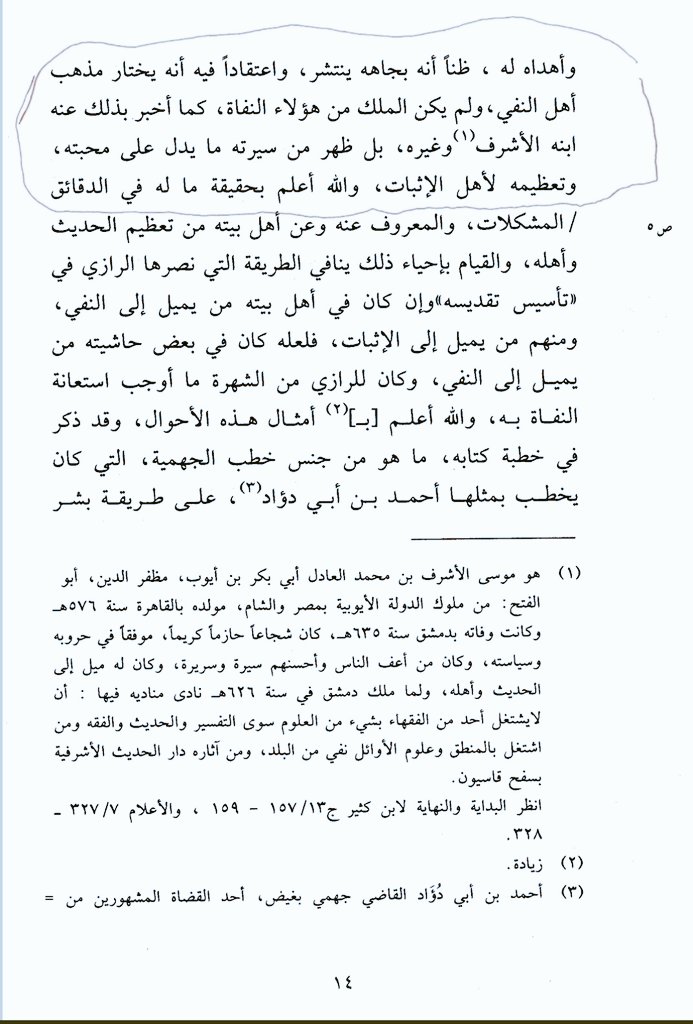 وأهداه له ، ظناً أنه بجاهه ينتشر، واعتقاداً فيه أنه يختار مذهب
أهل النفي،ولم يكن الملك من هؤلاء النفاة، كما أخبر بذلك عنه
ابنه الأشرف(١)وغيره، بل ظهر من سيرته ما يدل على محبته،
وتعظيمه لأهل الإثبات، والله أعلم بحقيقة ما له في الدقائق
/ المشكلات، والمعروف عنه وعن أهل بيته من تعظيم الحديث
ص٥
وأهله، والقيام بإحياء ذلك ينافي الطريقة التي نصرها الرازي في
«تأسيس تقديسه»وإن كان في أهل بيته من يميل إلى النفي،
ومنهم من يميل إلى الإثبات، فلعله كان في بعض حاشيته من
يميـل إلى النفي، وكان للرازي من الشهرة ما أوجب استعانة
النفـاة بـه، والله أعلـم [بـ](٢) أمثـال هـذه الأحوال، وقد ذكر
في خطبة كتابه، ما هو من جنس خطب الجهمية، التي كان
يخطـب بمثلهـا أحمـد بـن أبـي دؤاد(٣)، علـى طـريقـة بشـر
(١) هو موسى الأشرف بن محمد العادل أبي بكر بن أيوب، مظفر الدين، أبو
الفتح: من ملوك الدولة الأيوبية بمصر والشام، مولده بالقاهرة سنة ٥٧٦هـ
وكانت وفاته بدمشق سنة ٦٣٥هـ، كان شجاعاً حازماً كريماً، موفقاً في حروبه
وسياسته، وكان من أعف الناس وأحسنهم سيرة وسريرة، وكان له ميل إلى
الحديث وأهله، ولما ملك دمشق في سنة ٦٢٦هـ نادى مناديه فيها : أن
لايشتغل أحد من الفقهاء بشيء من العلوم سوى التفسير والحديث والفقه ومن
اشتغل بالمنطق وعلوم الأوائل نفي من البلد، ومن آثاره دار الحديث الأشرفية
بسفح قاسيون.
انظر البداية والنهاية لابن كثير ج١٥٧/١٣ - ١٥٩ ، والأعلام ٣٢٧/٧ ـ
٣٢٨.
(٢) زيادة.
(٣) أحمد بن أبي دُؤَاد القاضي جهمي بغيض، أحد القضاة المشهورين من =
١٤